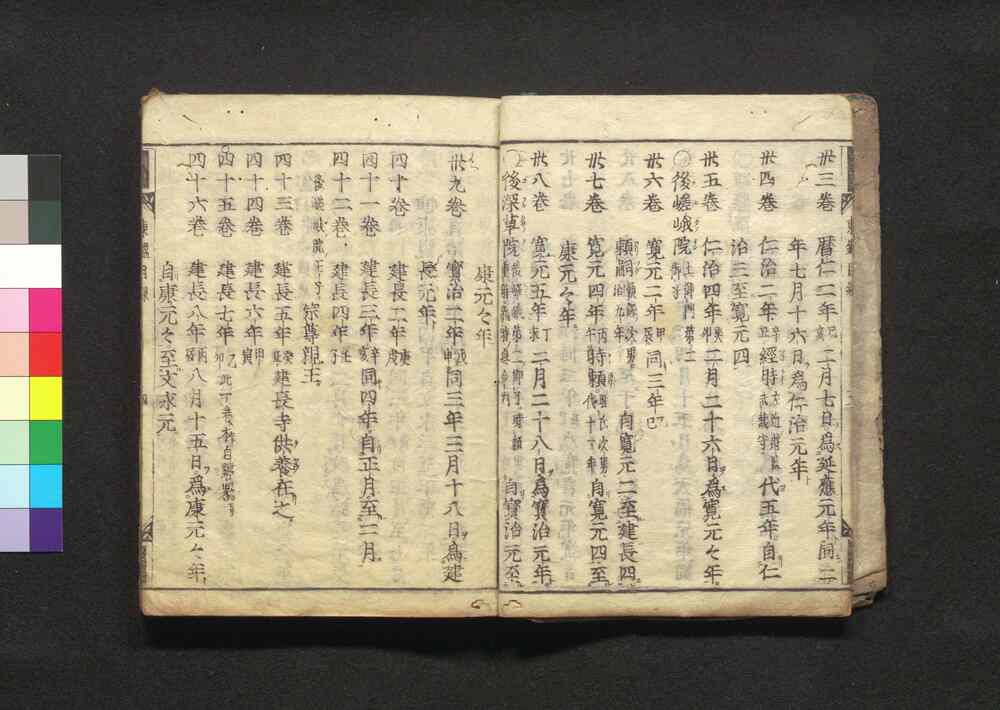 卅三巻 暦仁二年己亥二月七日爲延應元年同二
年七月十六日爲仁治元年
卅四巻 仁治二年辛丑經時 代五年自仁
治三至寛元四
卅五巻 仁治四年癸卯二月二十六日爲寛元々年
〇後嵯峨院 土御門第二
卅六巻 寛元二年甲辰同三年乙巳
頼嗣 自寛元二至建長四
卅七巻 寛元四年丙午時頼 自寛元四至
康元々年
卅八巻 寛元五年丁未二月二十八日爲寶治元年
〇後深草院 自寶治元至
康元々年
卅九巻 寶治二年戊申同三年三月十八日爲建
長元年
四十巻 建長二年庚戌
四十一巻 建長三年辛亥同四年自正月至二月
四十二巻 建長四年壬子
後嵯峨院 宗尊親王
四十三巻 建長五年癸丑建長寺供養在之
四十四巻 建長六年甲寅
四十五巻 建長七年乙卯此一巻
四十六巻 建長八年丙辰八月十五日爲康元々年
自康元々至文永元